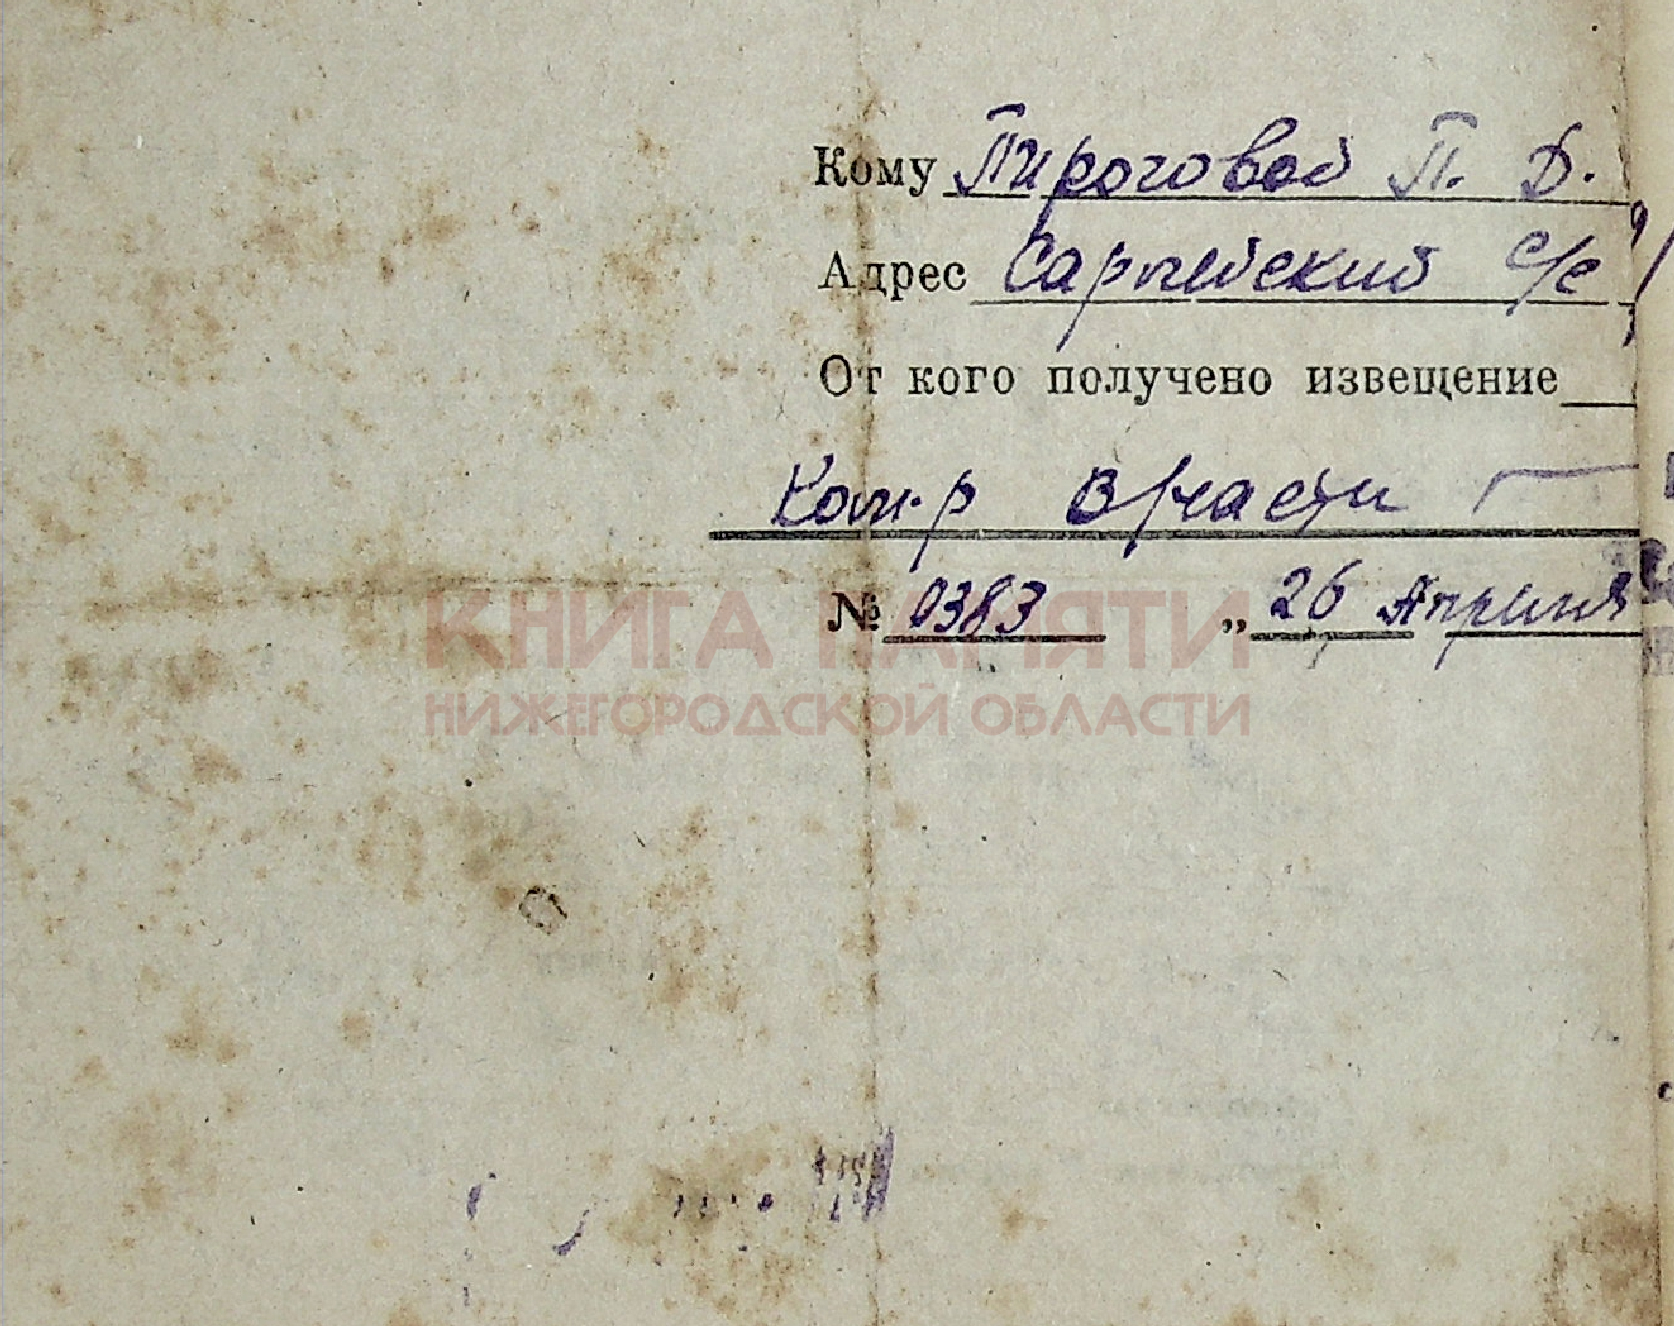 Кому Пироговой П. Д.
Адрес Сарлейский с/с
От кого получено извещение
Ком-р В/части
№ 0383 „ 26 Апреля
КНИГА ПАМЯТИ
НИЖЕГОРОДСКОЙ ОБЛАСТИ